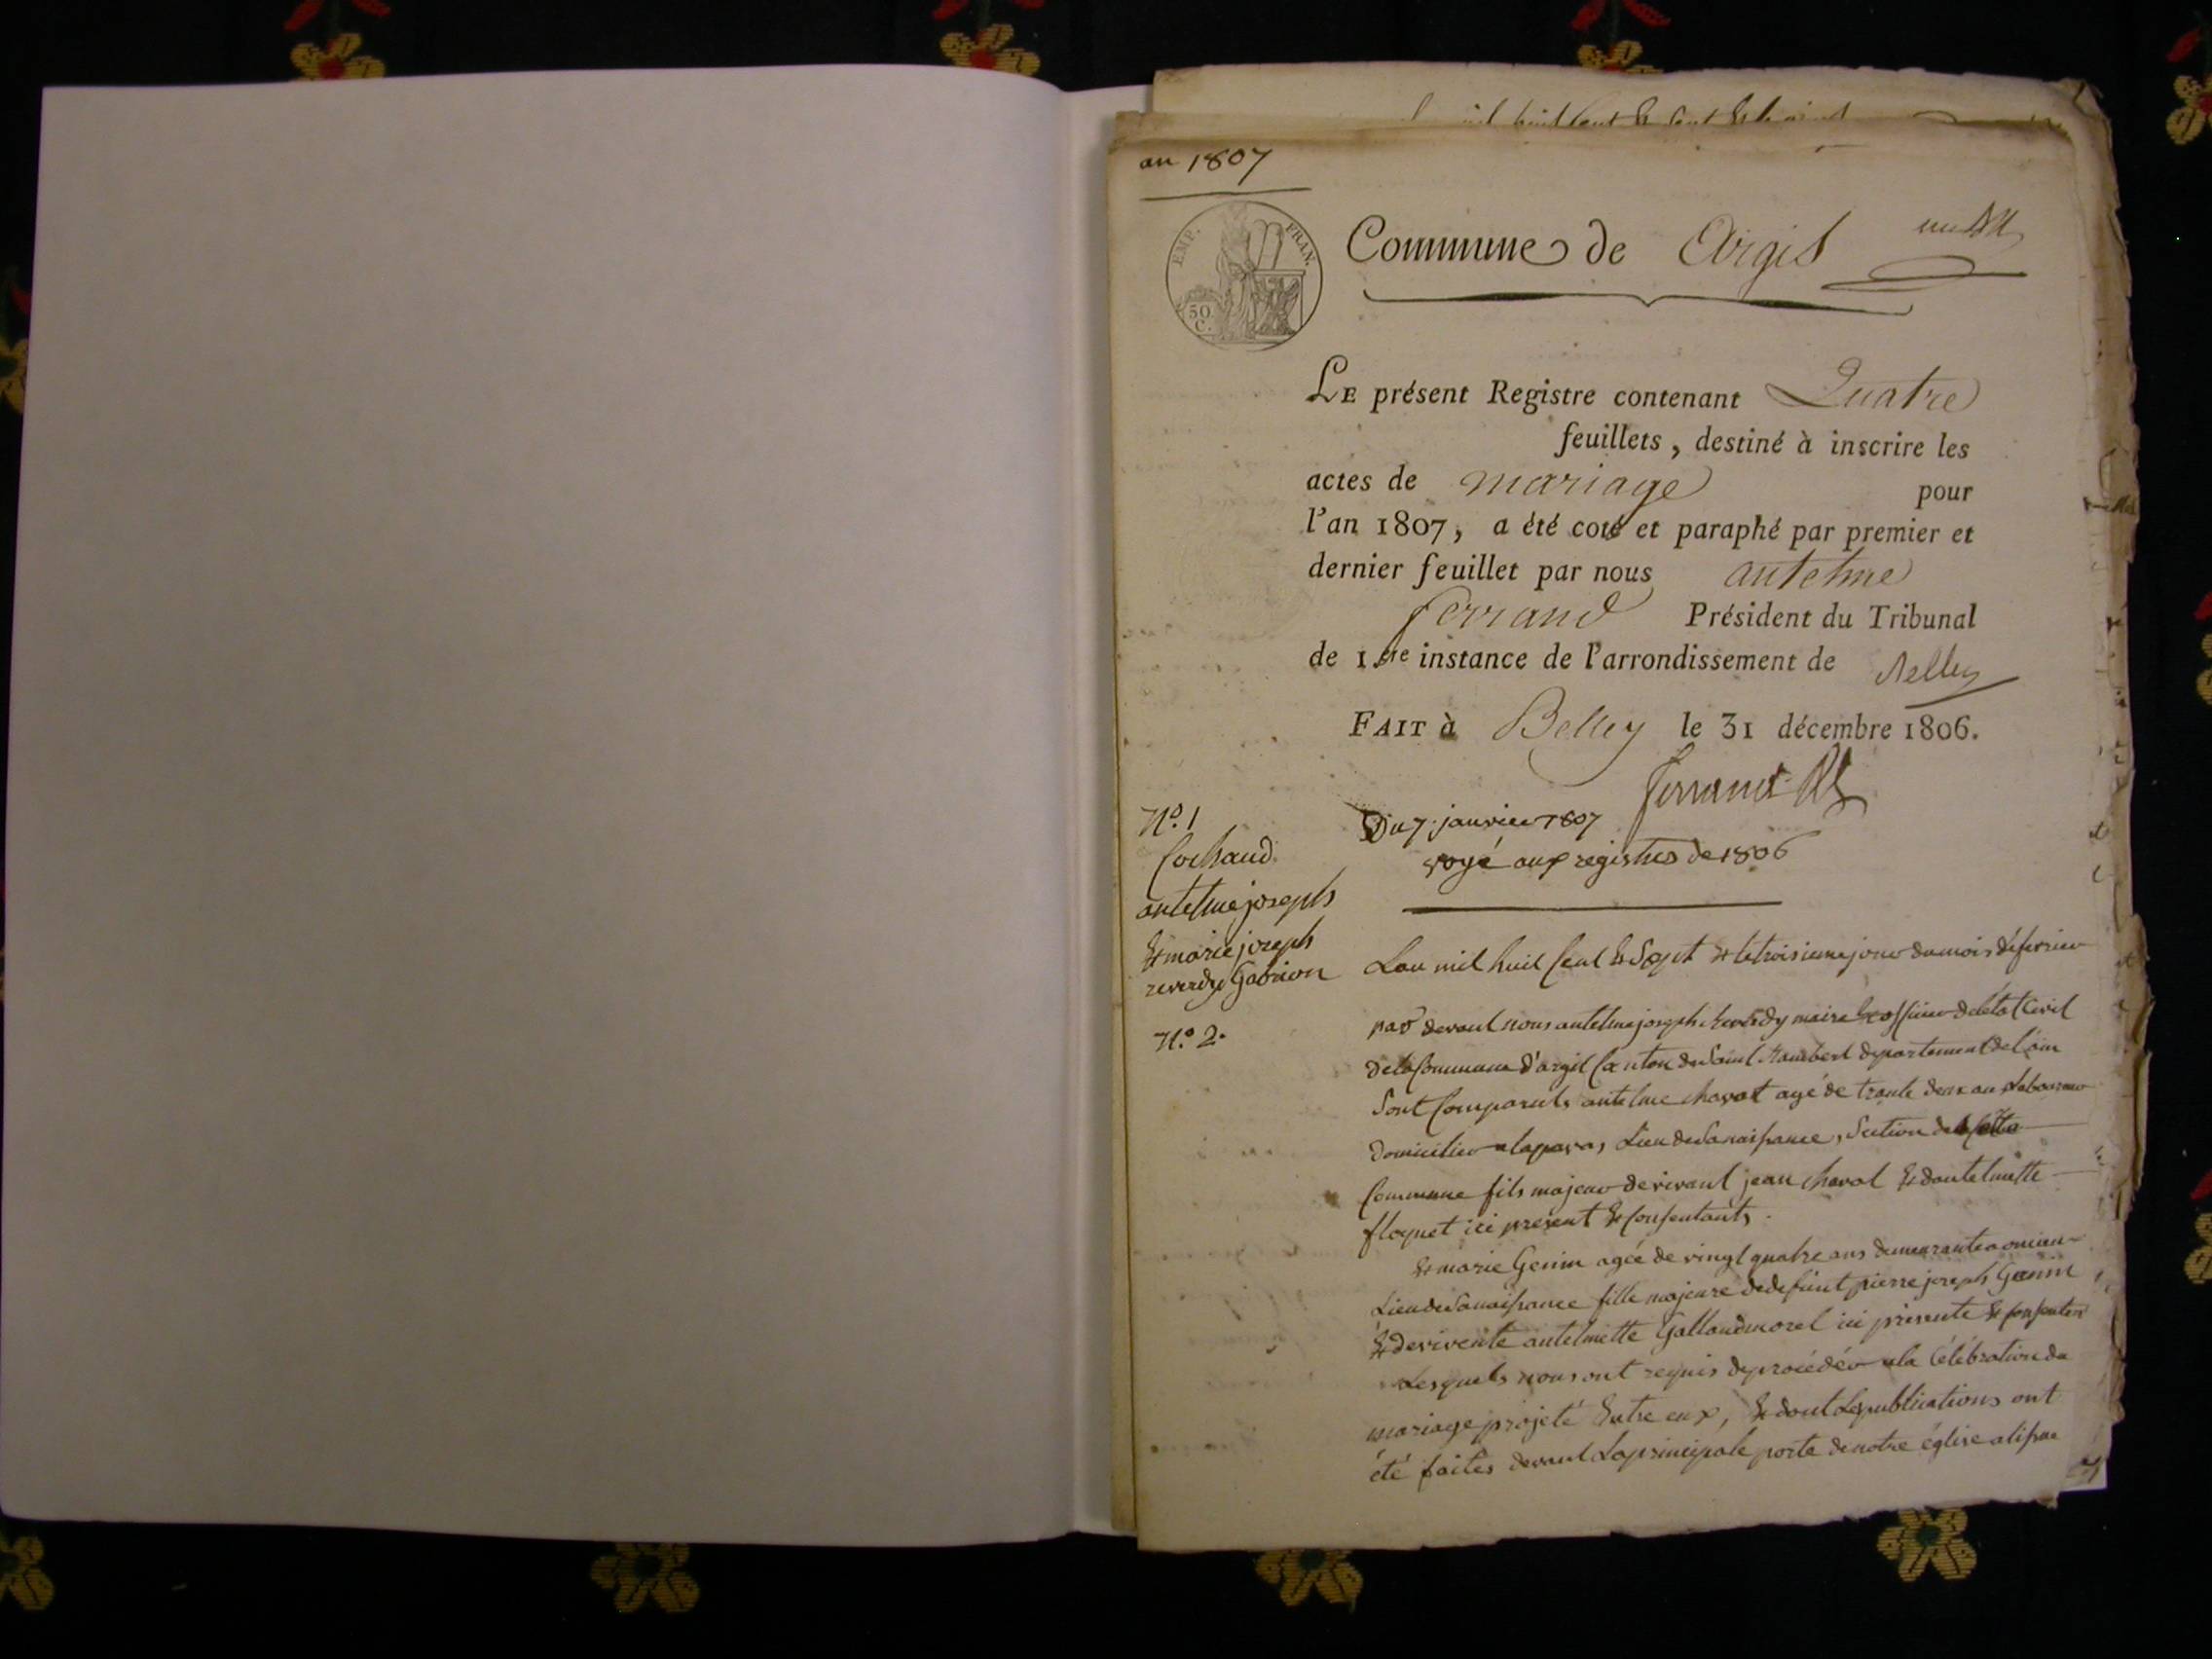 an 1807
EMP. FRAN.
50 C.
Commune de Argis
Le présent Registre contenant Quatre
feuillets, destiné à inscrire les
actes de mariage pour
l'an 1807, a été coté et paraphé par premier et
dernier feuillet par nous antelme
ferrand Président du Tribunal
de 1.ere instance de l'arrondissement de Belley
Fait à Belley le 31 décembre 1806.
ferrand
N.o 1
Cochaud
antelme joseph
& marie joseph
reverdy Gabrion
Du 7 janvier 1807
voyé aux registres de 1806
N.o 2.
Lan mil huit Cent & Sept & le troisieme jour du mois de fevrier
par devant nous antelme joseph Reverdy maire & officier de létat Civil
de la Commune d'argil Canton de Saint Rambert departement de l'ain
Sont Comparuts antelme chavat agé de trante deux an Laboureur
Domicilier a Lieu de Sa naissance, Section de
Commune fils majeur de vivant jean chavat & dantelmette
floquet ici present & Consentants.
& marie Genin agée de vingt quatre ans demeurante a
Lieu de Sa naissance fille majeure de defunt pierre joseph Genin
& de vivente antelmette Galland morel ici presente & Consente
Lesquels nous ont requis de procédér a la Célébration du
mariage projeté Entre eux, & dont Les publications ont
été faites devant La principale porte de notre église